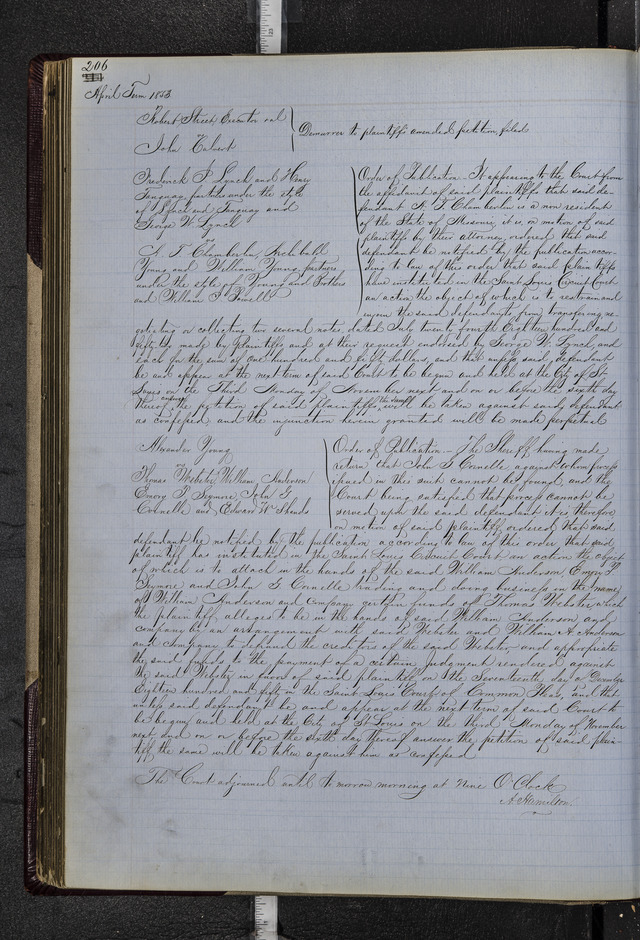 206
April Term 1853
Robert Street Executor
John
Demurrer to plaintiffs amended petition filed
Frederick P Lynch and Henry
Tanguay partners under the style
of Lynch and Tanguay and
George W. Lynch
vs
N. T. Chamberlin Archibald
Young and William Young partners
under the style of Young and Brothers
and William
Order of Publication. It appearing to the Court from
the affidavit of said plaintiffs that said de-
fendant N. T. Chamberlin is a non resident
of the State of Missouri it is on motion of said
plaintiffs by their attorney ordered that said
defendant be notified by the publication accor-
ding to law of this order that said plaintiffs
have instituted in the Saint Louis Circuit Court
an action the object of which is to restrain and
enjoin the said defendant from transferring ne-
gotiating or collecting two several notes dated July twenty fourth Eighteen hundred and
fifty made by plaintiffs and at their request endorsed by George W. Lynch, and
each for the sum of one hundred and fifty dollars, and that unless said defendant
be and appear at the next term of said Court to be begun and held at the City of St
Louis on the Third Monday of November next and on or before the sixth day
thereof answer the petition of said plaintiffs the same will be taken against said defendant
as confessed and the injunction herein granted will be made perpetual
Alexander Young
vs
Thomas Webster William Anderson
Emory T Seymore John G
Cornelle and Edward W Shands
Order of Publication - The Sheriff having made
return that John G Cornelle against whom process
issued in this suit cannot be found, and the
Court being satisfied that process cannot be
served upon the said defendant it is therefore
on motion of said plaintiff ordered that said
defendant be notified by the publication according to law of this order that said
plaintiff has instituted in the Saint Louis Circuit Court an action the object
of which is to attach in the hands of the said William Anderson Emory T
Seymore and John G Cornelle trading and doing business in the name
of William Anderson and company certain funds of Thomas Webster which
the plaintiff alleges to be in the hands of said William Anderson and
company by an arrangement with said Webster and William A Anderson
and company to defraud the creditors of the said Webster and appropriate
the said funds to the payment of a certain judgment rendered against
the said Webster in favor of said plaintiff on the Seventeenth day of December
Eighteen hundred and fifty in the Saint Louis Court of Common Pleas, and that
unless said defendant be and appear at the next term of said Court to
be begun and held at the City of St Louis on the third Monday of November
next and on or before the sixth day thereof answer the petition of said plain-
tiff the same will be taken against him as confessed
The Court adjourned until to morrow morning at Nine O'Clock
A Hamilton